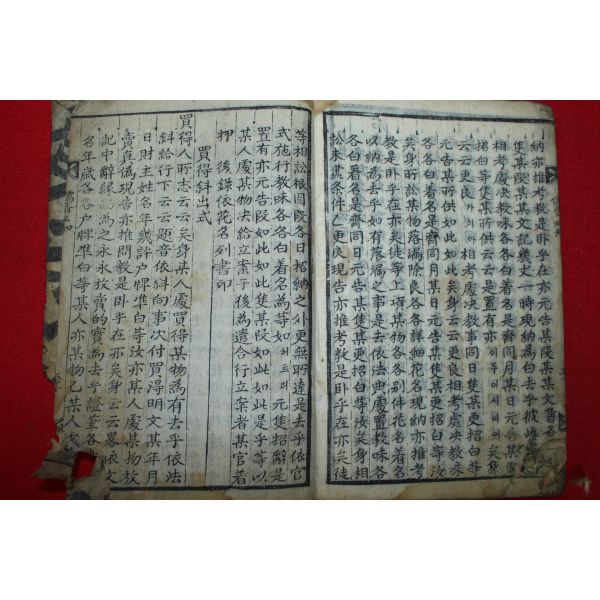 納亦推考教是卧乎在亦元告某段某某文書各
隻某段某某文記幾丈一時現納為白去乎彼此
相考處決教味各各白着名是齊同月某日元告某隻
招白等隻某所供云云是置有亦이두이시이며矣身
云云更良 相考處決教事同日隻某更招白等
元告某所供如此如此矣身云云更良相考處決教味
各各白着名是齊同月某日元告某隻某更招白等汝
矣身所訟某物落漏除良各各詳細花名現納亦推考
教是卧乎在亦矣徒等上項某物各各别件花名着名
以納為去乎如有落漏之事是去等依法典處置教味各
各白着名是齊同月某日元告某隻某更招白等汝矣身相
訟未盡條件乙更良現告亦推考教是卧乎在亦矣徒
等相訟根因段各日招納之外更無所達是去乎依官
式施行教味各各白着名為等如하트러元隻招辭是
置有亦元告段如此如此隻某段如此如此是乎等以
某人處某物決給立案于後為遣合行立案者某官着
押 後錄依花名列書印
買得斜出式
買得人所志云云矣身某人處買得某物為有去乎依法
斜給行下云云題音依斜向事次付買得明文某年月
日財主姓名年幾許戶牌準白等汝亦某處某物放
賣真僞現告亦推問教是卧乎在亦矣身云云畧依文
記中辭緣為之永永放賣的實為去乎證筆各人
名年歲各各戶牌準白等某亦某物乙某人處